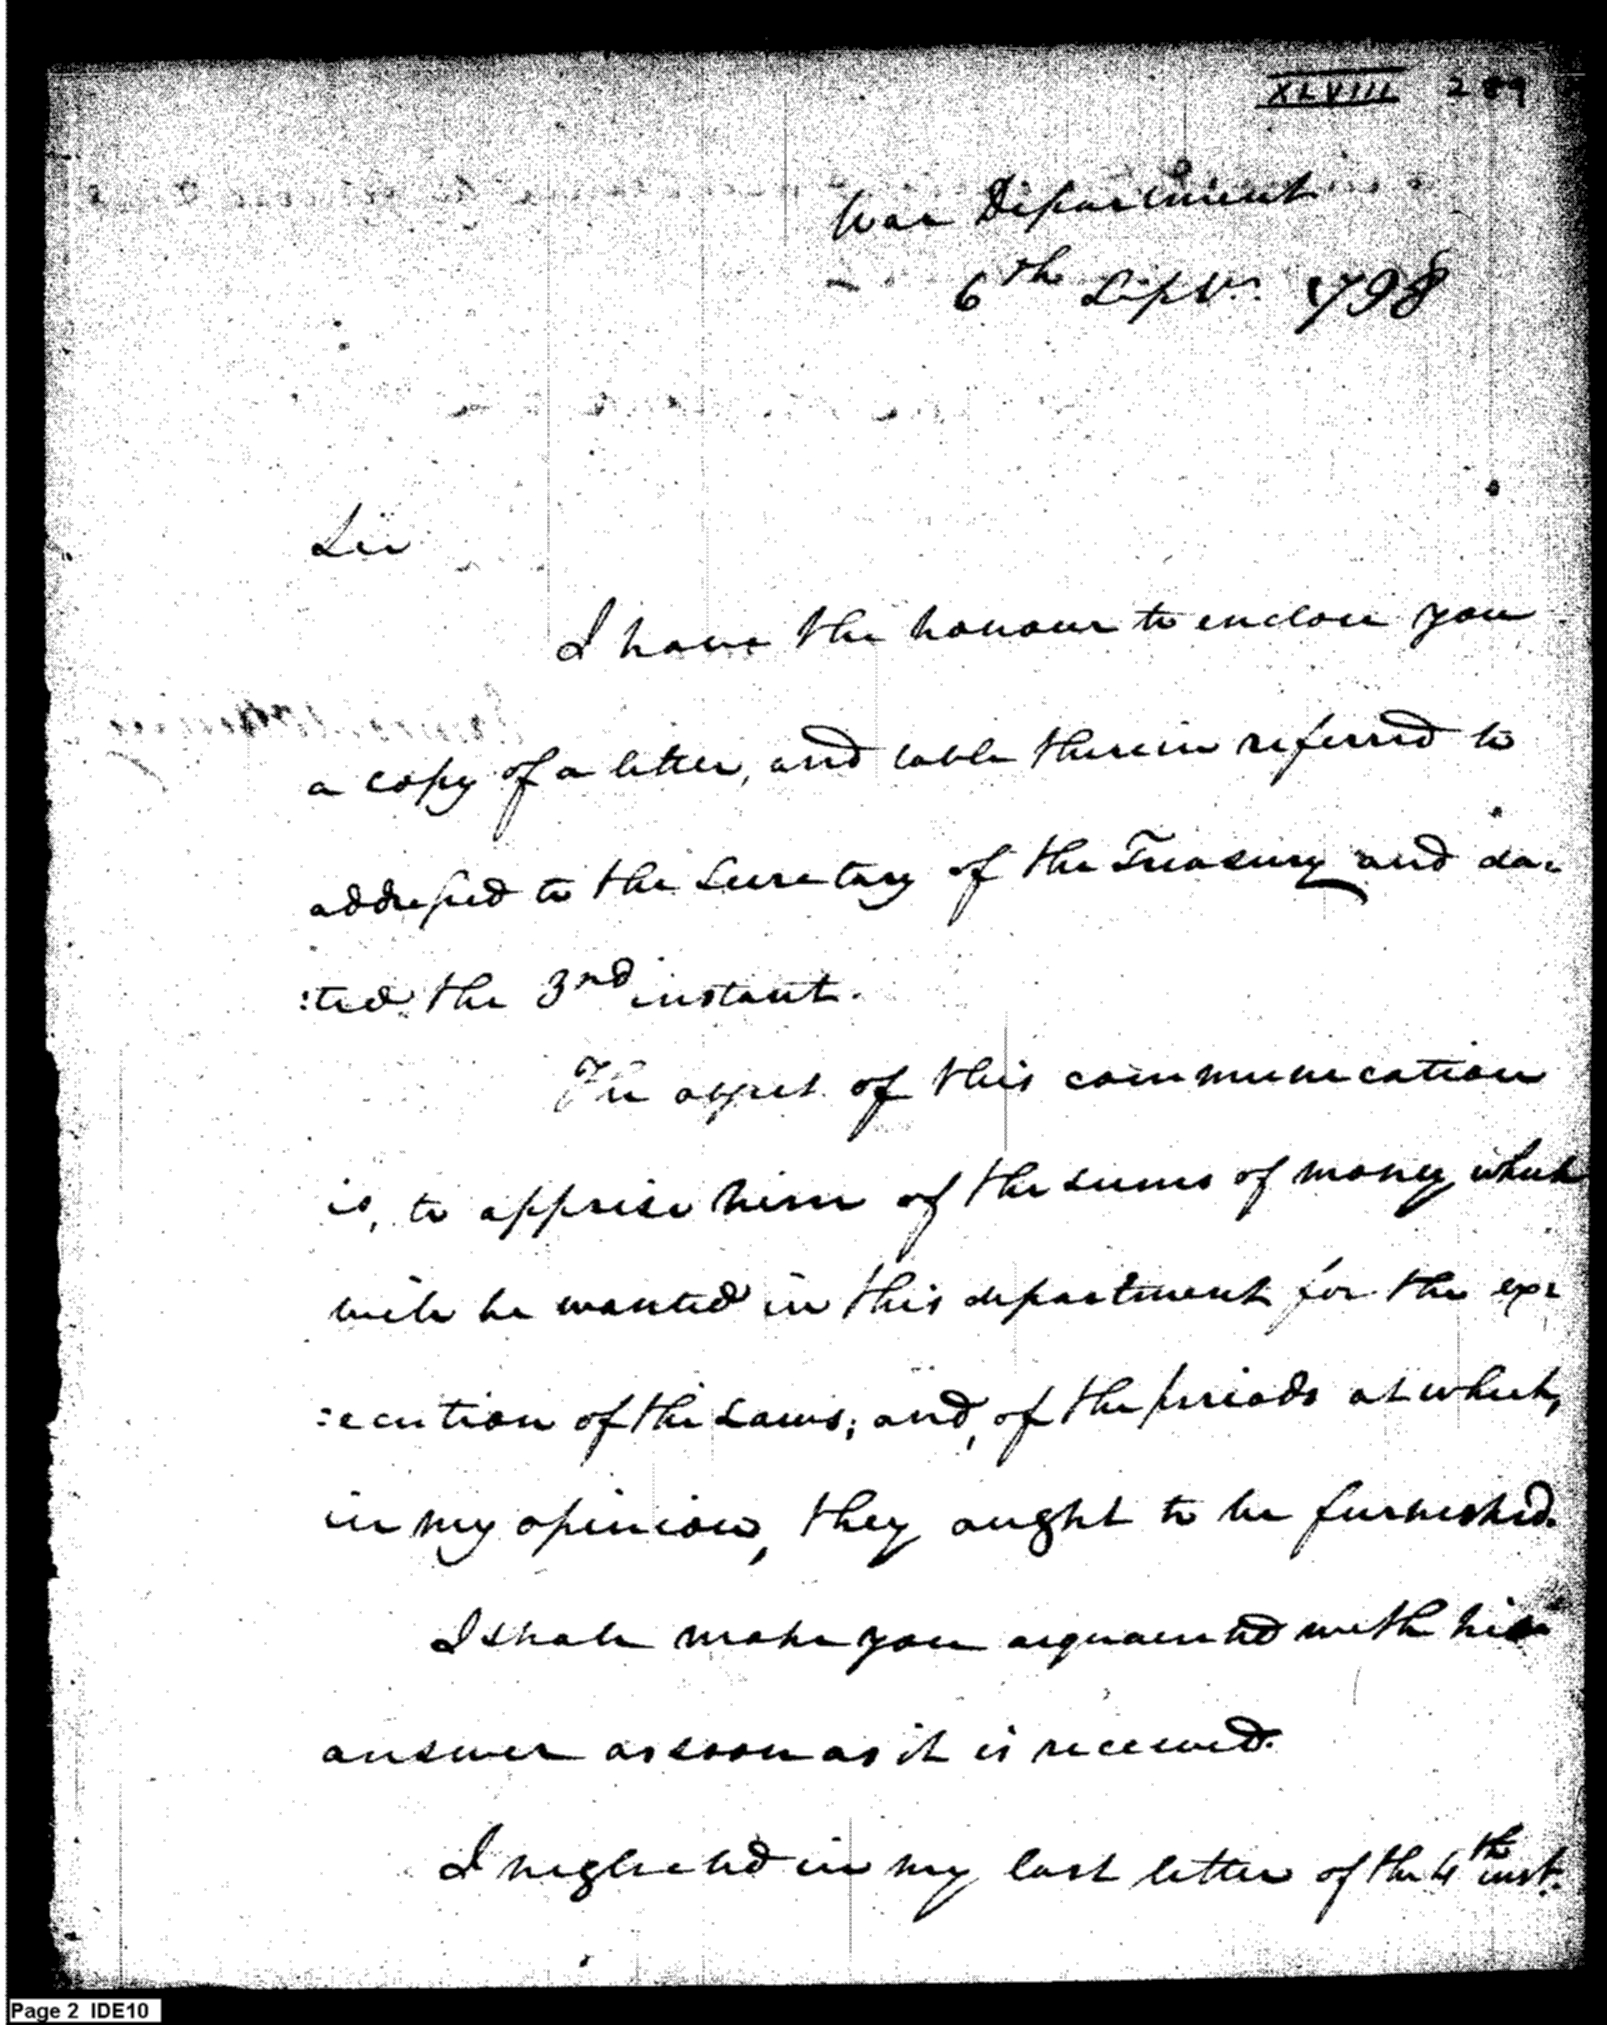 XLVIII 289
War Department
6th Sepbr. 1798
Sir
I have the honour to enclose you
a copy of a letter, and table therein referred to
addressed to the Secretary of the Treasury and da=
:ted the 3rd instant.
The object of this communication
is, to apprise him of the sums of money which
will be wanted in this department for the ex=
:ecution of the Laws; and, of the periods at which,
in my opinion, they ought to be furnished.
I shall make you acquainted with his
answer as soon as it is received.
I neglected in my last letter of the 4th inst.
Page 2 IDE10